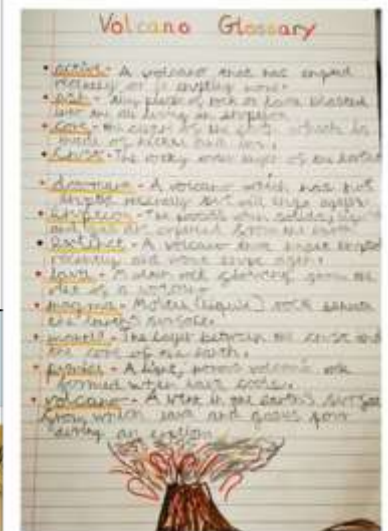 Volcano Glossary
• active - A volcano that has erupted
recently or is erupting now.
• ash - Tiny pieces of rock or lava blasted
into the air during an eruption.
• core - the center of the earth, which is
made of nickel and iron.
• crust - The rocky outer layer of the earth
• dormant - A volcano which has not
erupted recently but will erupt again.
• eruption - The process when solids, liquids
and gas are expelled from the earth
• extinct - A volcano that hasn't erupted
recently and wont erupt again.
• lava - Molten rock flowing from the
vent of a volcano.
• magma - Molten (liquid) rock beneath
the earth's surface.
• mantle - The layer between the crust and
the core of the earth.
• pumice - A light, porous volcanic rock
formed when lava cools.
• volcano - A vent in the earth's surface
from which lava and gases flow
during an eruption